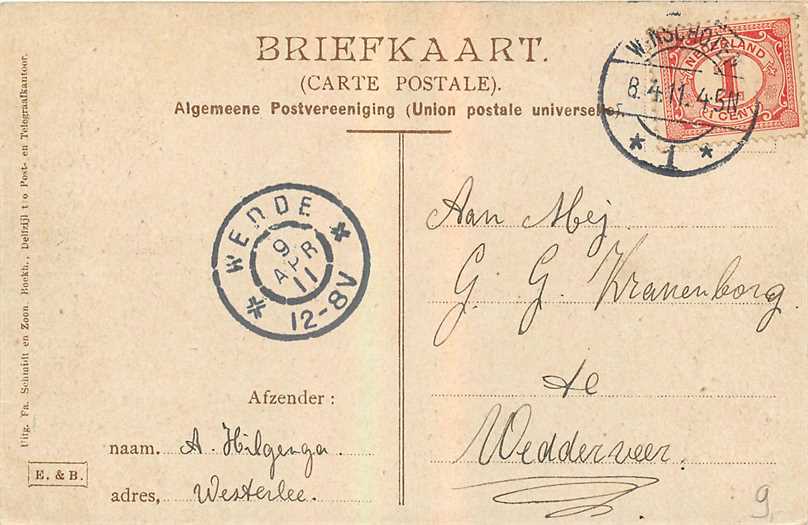 BRIEFKAART.
(CARTE POSTALE).
Algemeene Postvereeniging (Union postale universelle).
WINSCHOTEN
8.4.11.4-5N
* 1 *
NEDERLAND
CENT
WEDDE
9
APR
11
12-8V
Aan Mej
G. G. Kranenborg.
te
Wedderveer.
Afzender:
naam. A. Hilgenga.
adres, Westerlee.
E. & B.
Uitg. Fa. Schmidt en Zoon. Boekh., Delfzijl t/o Post- en Telegraafkantoor.
9,